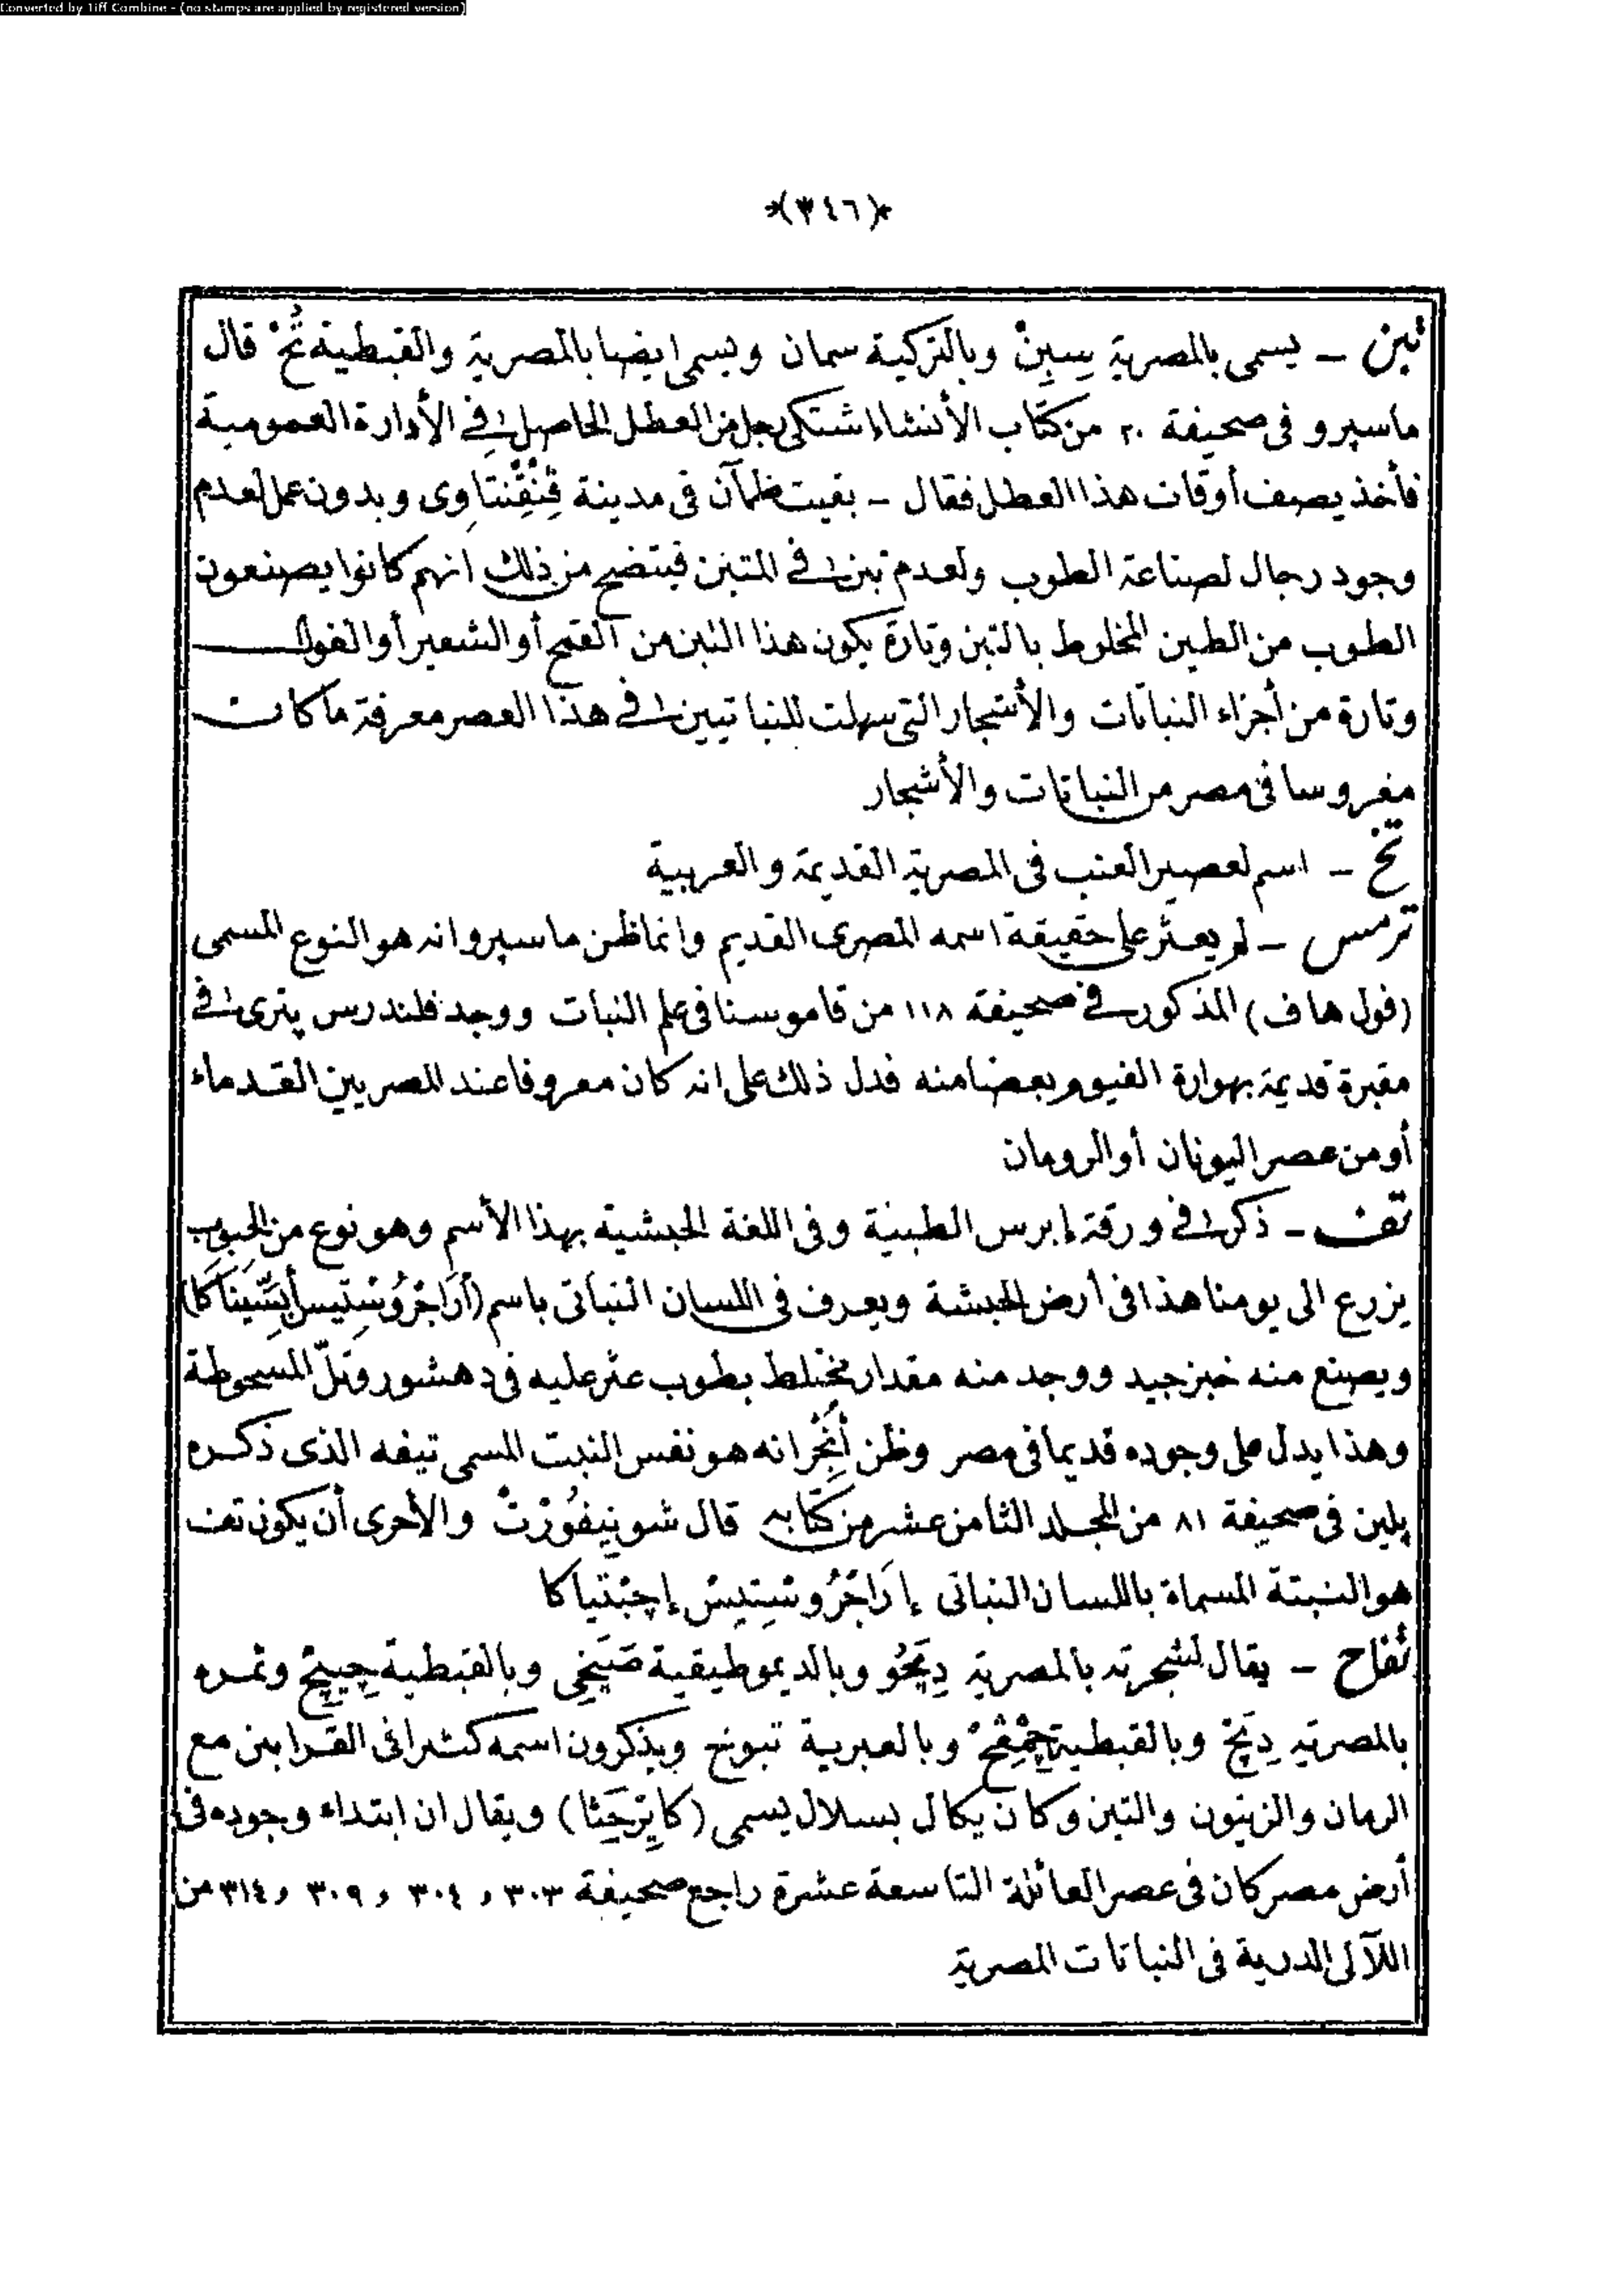 Converted by Tiff Combine - (no stamps are applied by registered version)
*(٣٤٦)*
تبن ــ يسمى بالمصرية سِبِنْ وبالتركية سمان ويسمى ايضا بالمصرية والقبطية تُخْ قال
ماسپرو فى صحيفة ٢٠ من كتاب الأنشاء اشتكى رجل من العطل الحاصل فى الأدارة العمومية
فأخذ يصف أوقات هذا العطل فقال ــ بقيت ظمآن فى مدينة قِنْقِنْتاوى وبدون عمل لعدم
وجود رجال لصناعة الطوب ولعدم تبن فى المتبن فيتضح من ذلك انهم كانوا يصنعون
الطوب من الطين المخلوط بالتبن وتارة يكون هذا التبن من القمح أو الشعير أو الفول
وتارة من أجزاء النباتات والأشجار التى سهلت للنباتيين فى هذا العصر معرفة ما كان
مغروسا فى مصر من النباتات والأشجار
تخ ــ اسم لعصير العنب فى المصرية القديمة والعربية
ترمس ــ لم يعثر على حقيقة اسمه المصرى القديم وانما ظن ماسپرو انه هو النوع المسمى
(فول هاف) المذكور فى صحيفة ١١٨ من قاموسنا فى علم النبات ووجد فلندرس پترى فى
مقبرة قديمة بهوارة الفيوم بعضا منه فدل ذلك على انه كان معروفا عند المصريين القدماء
أو من عصر اليونان أو الرومان
تف ــ ذكر فى ورقة إبرس الطبية وفى اللغة الحبشية بهذا الأسم وهو نوع من الحبوب
يزرع الى يومنا هذا فى أرض الحبشة ويعرف فى اللسان النباتى باسم (أَرَاجْرُوسْتِيس أَبِسِّينَاكَا)
ويصنع منه خبز جيد ووجد منه مقدار مختلط بطوب عثر عليه فى دهشور وتلّ المسخوطة
وهذا يدل على وجوده قديما فى مصر وظن أُنْجَرْ انه هو نفس النبت المسمى تيفه الذى ذكره
پلين فى صحيفة ٨١ من المجلد الثامن عشر من كتابه قال شوينفُورْتْ والأحرى أن يكون تف
هو النبتة المسماة باللسان النباتى إِرَاجْرُوسْتِيسْ إجبْتياكا
تفاح ــ يقال لشجرته بالمصرية دِپَحُو وبالديموطيقية وبالقبطية وثمره
بالمصرية دِپَحْ وبالقبطية وبالعبرية تبوخ ويذكرون اسمه كثيرا فى القرابين مع
الرمان والزيتون والتين وكان يكال بسلال يسمى ويقال ان ابتداء وجوده فى
أرض مصر كان فى عصر العائلة التاسعة عشرة راجع صحيفة ٣٠٣ و ٣٠٤ و ٣٠٩ و ٣١٤ من
اللآلى الدرية فى النباتات المصرية